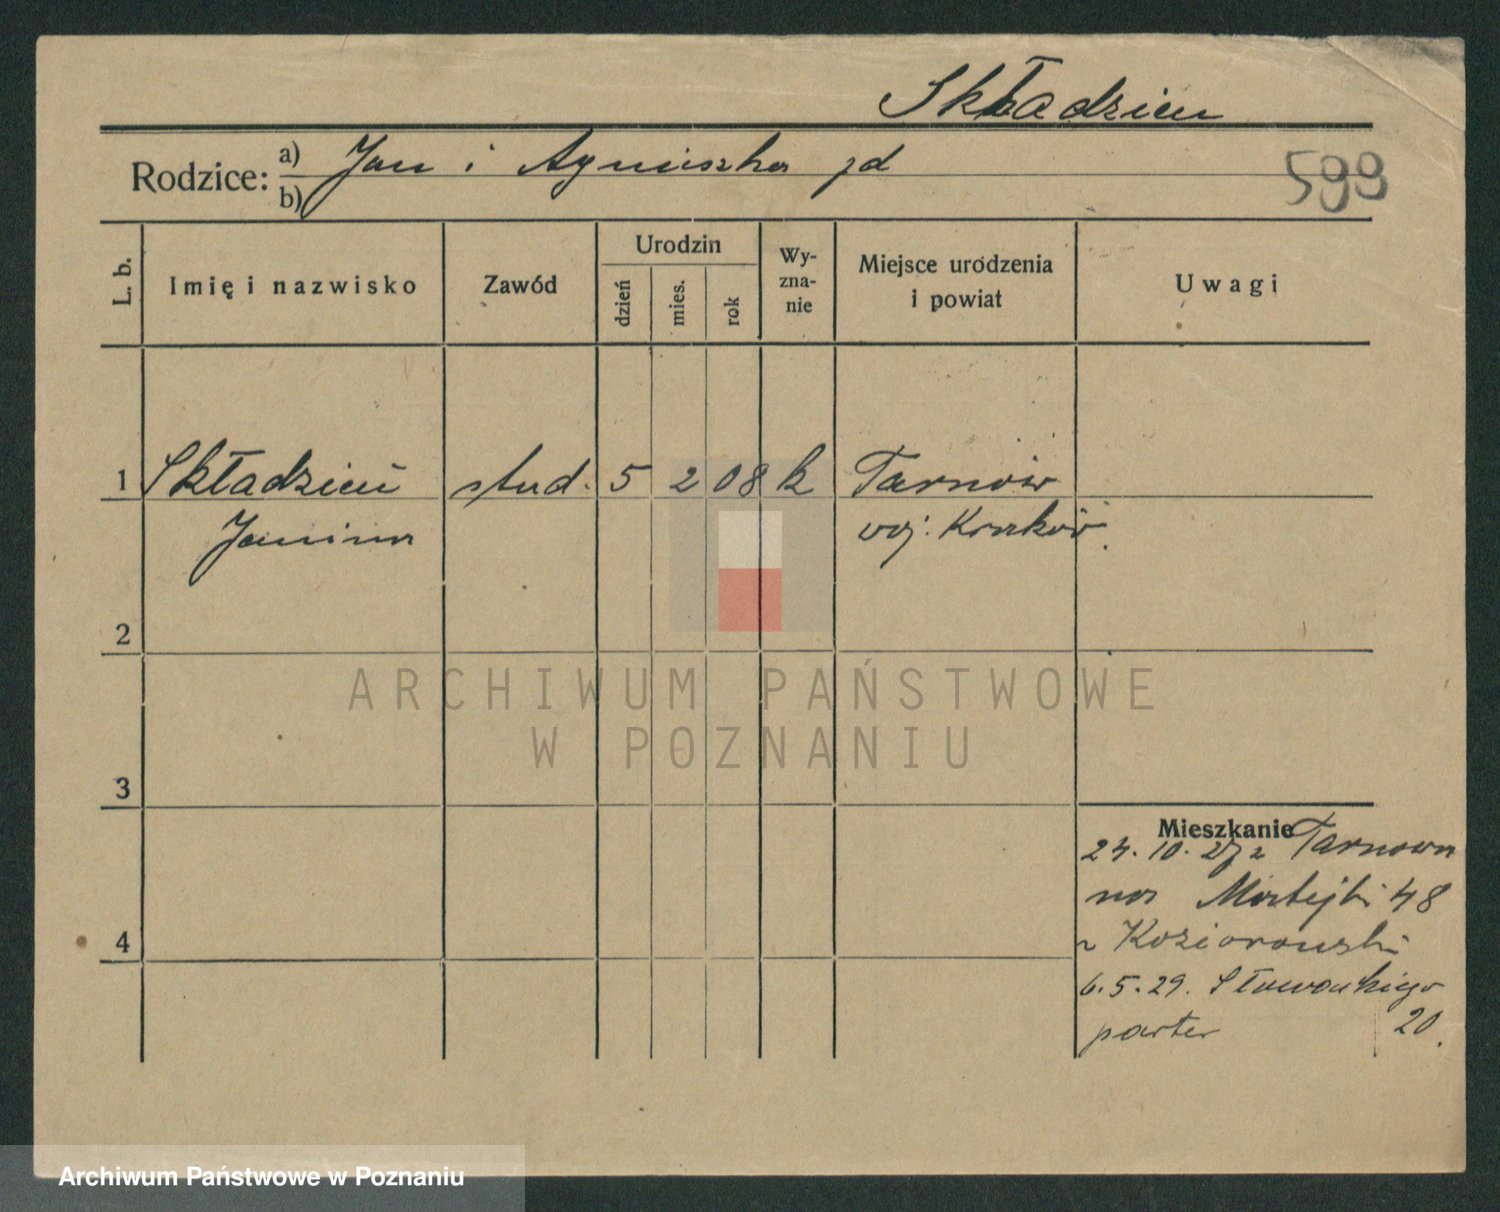 Składzień
Rodzice: a) Jan i Agnieszka
b)
599
L. b.
Imię i nazwisko
Zawód
Urodzin
dzień
mies.
rok
Wy-
zna-
nie
Miejsce urodzenia
i powiat
Uwagi
1 Składzień stud. 5 2 08 k Tarnów
Janina woj. Kraków.
2
ARCHIWUM PAŃSTWOWE
W POZNANIU
3
Mieszkanie
24. 10. 27 z Tarnowa
na Matejki 48
Koziorowski
4
6. 5. 29. Słowackiego
parter 20.
Archiwum Państwowe w Poznaniu